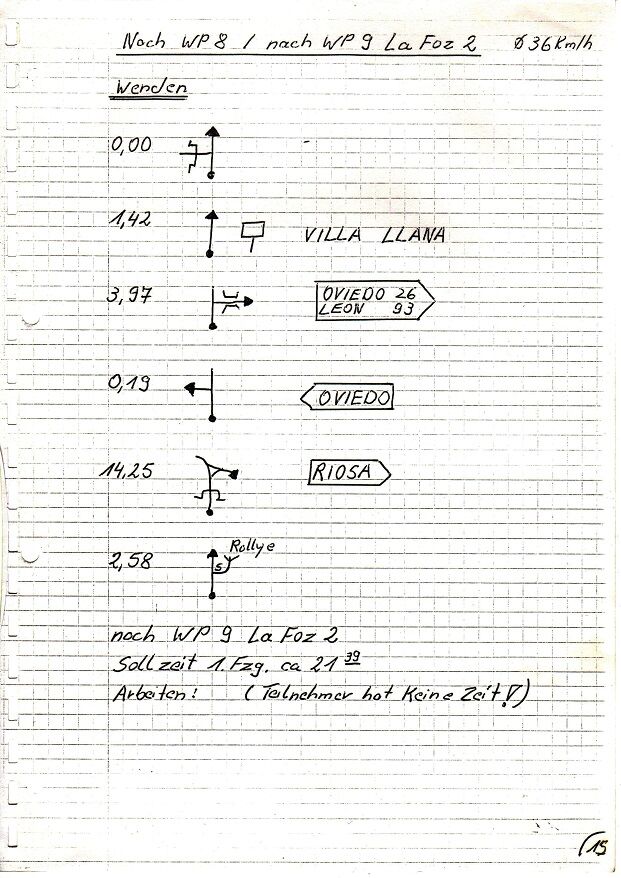 Nach WP 8 / nach WP 9 La Foz 2 Ø 36 Km/h
Wenden
0,00
1,42 VILLA LLANA
3,97 OVIEDO 26
LEON 93
0,19 OVIEDO
14,25 RIOSA
2,58 S Rallye
nach WP 9 La Foz 2
Sollzeit 1. Fzg. ca 21 39
Arbeiten! (Teilnehmer hat Keine Zeit!)
15